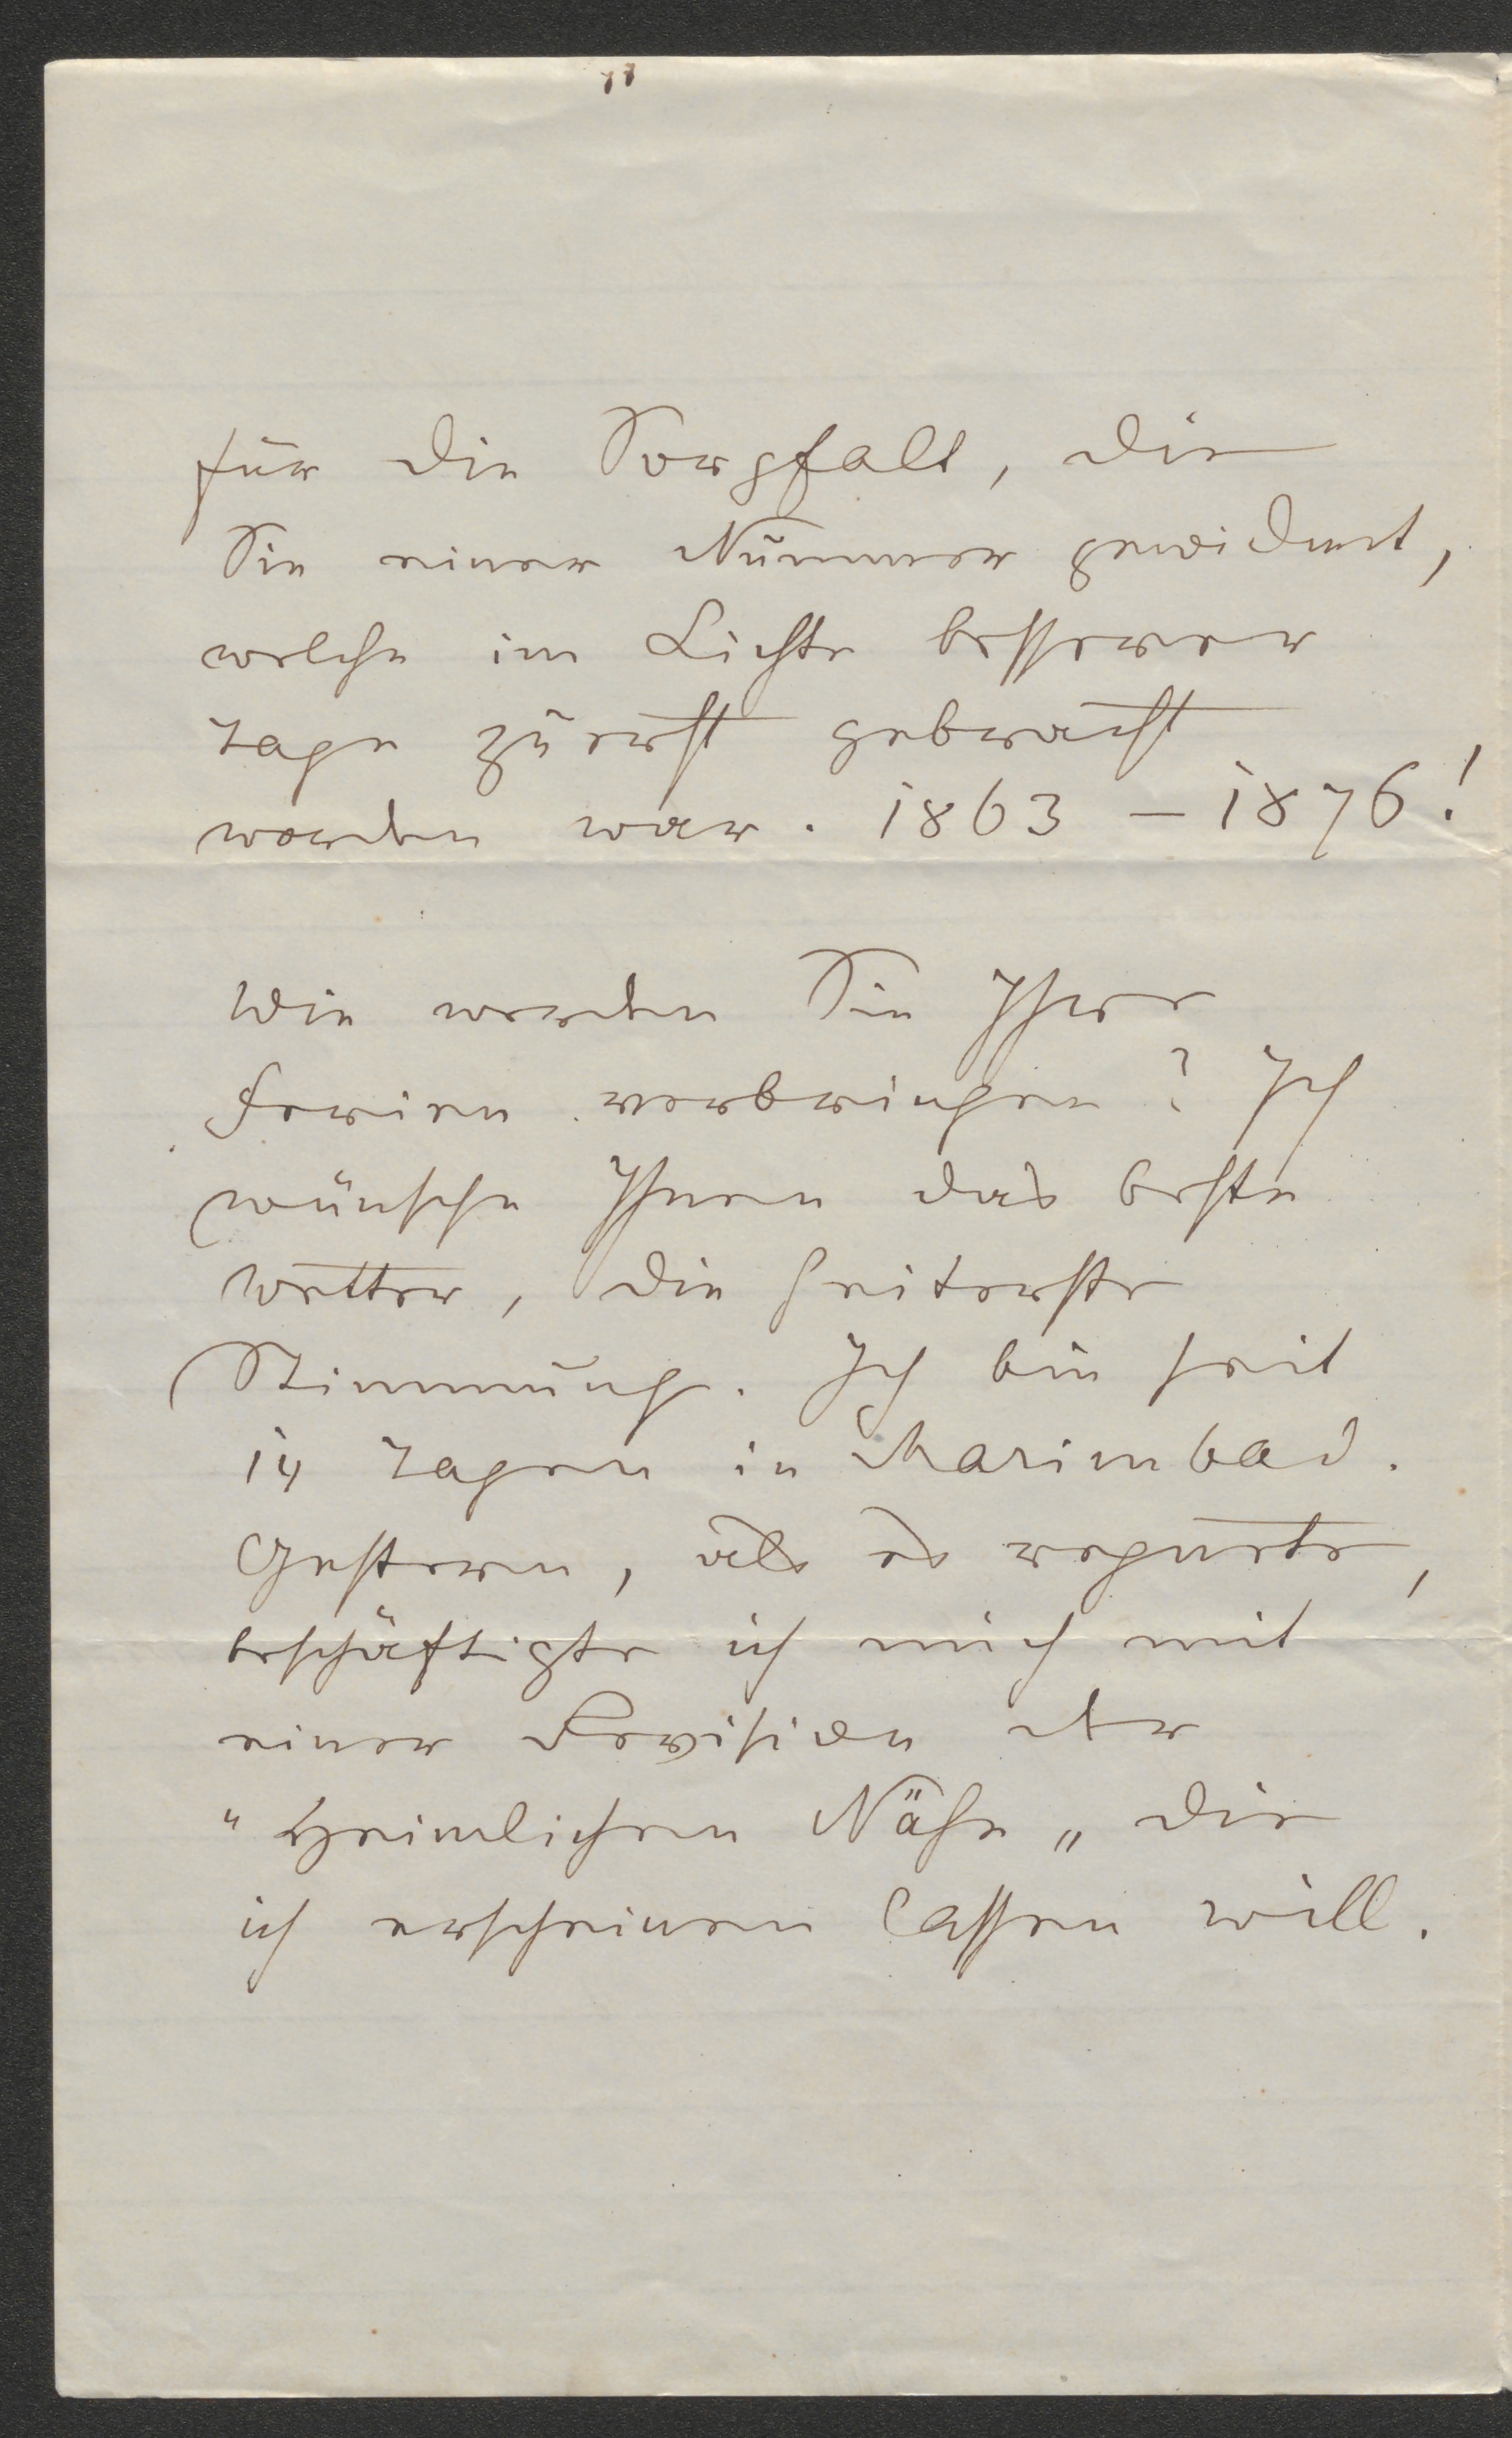 für die Sorgfalt, die
Sie einer Nummer gewidmet,
welche im Lichte besserer
Tage zuerst gebracht
worden war. 1863 – 1876!
Wie werden Sie Ihre
Ferien verbringen? Ich
wünsche Ihnen das beste
Wetter, die heiterste
Stimmung. Ich bin seit
14 Tagen in Marienbad.
Gestern, als es regnete,
beschäftigte ich mich mit
einer Revision der
"Heimlichen Nähe" die
ich erscheinen lassen will.